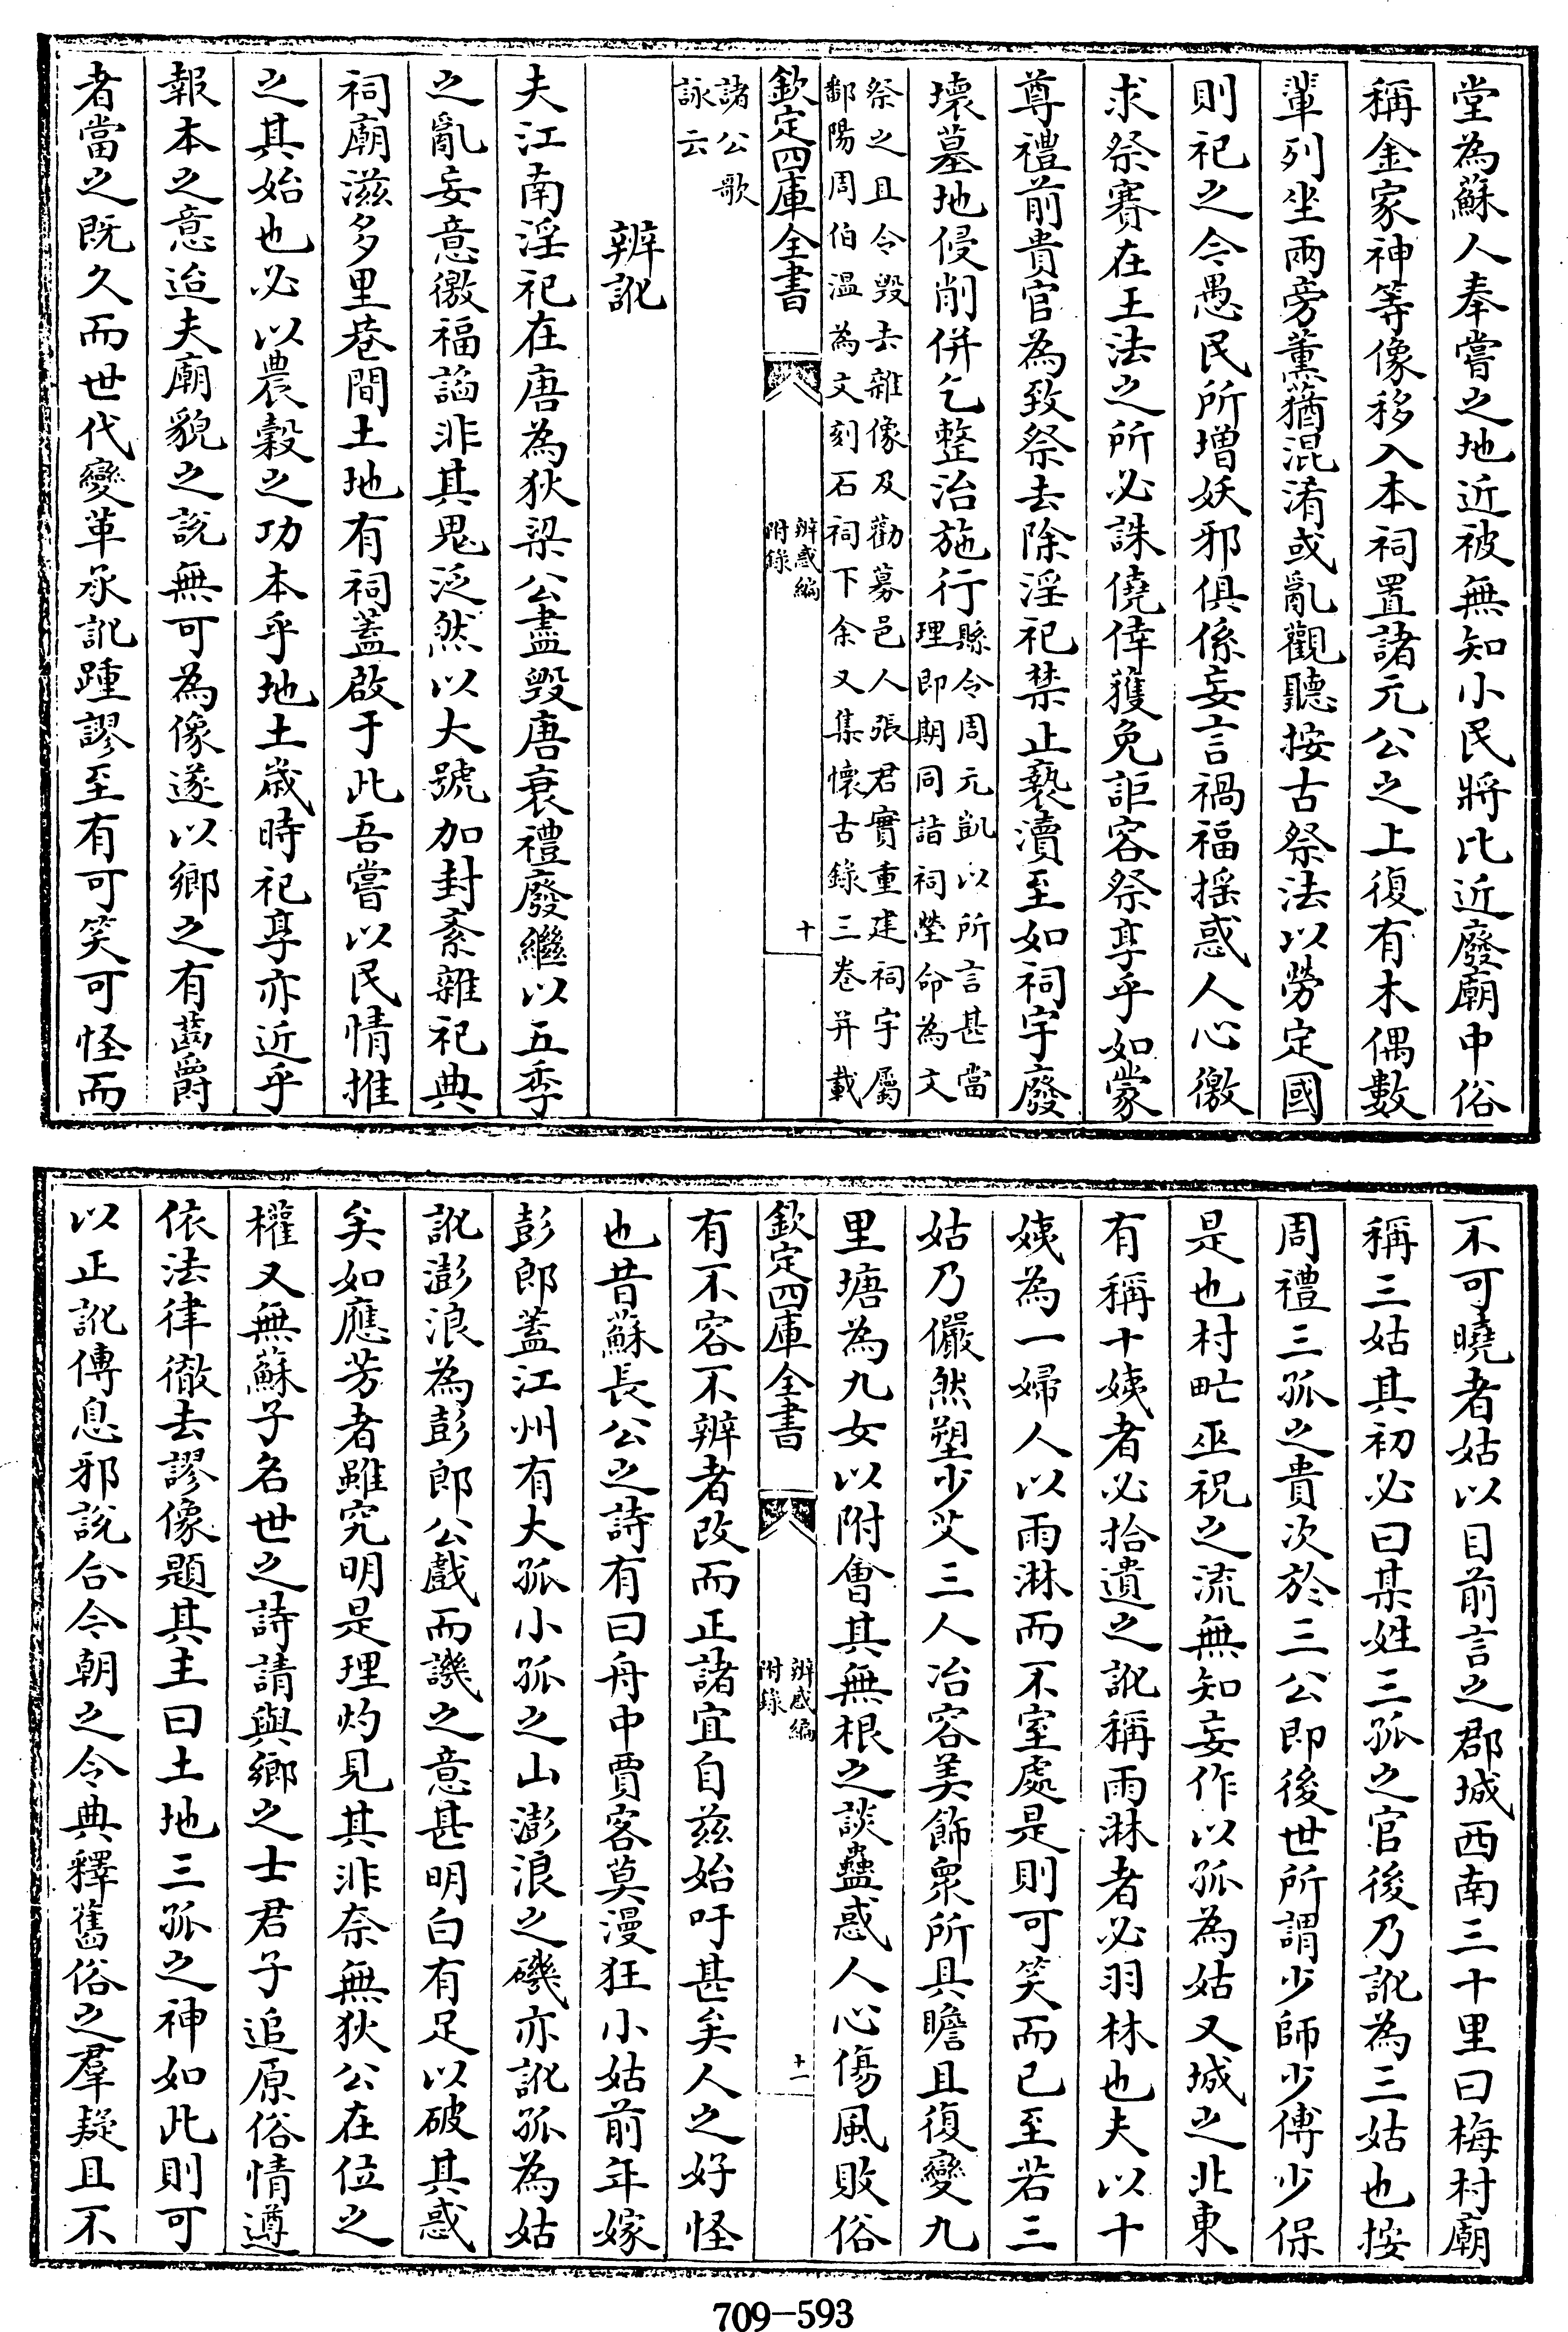 堂為蘇人奉嘗之地近被無知小民將比近廢廟中俗
稱金家神等像移入本祠置諸元公之上復有木偶數
輩列坐兩旁薰蕕混淆或亂觀聽按古祭法以勞定國
則祀之今愚民所增妖邪俱係妄言禍福搖惑人心徼
求祭賽在王法之所必誅僥倖獲免詎容祭享乎如蒙
尊禮前貴官為致祭去除淫祀禁止褻瀆至如祠宇廢
壞墓地侵削併乞整治施行縣令周元凱以所言甚當
理即期同詣祠塋命為文
祭之且令毀去雜像及勸募邑人張君實重建祠宇屬
鄱陽周伯温為文刻石祠下余又集懷古錄三卷并載
欽定四庫全書
辨惑編
附錄
十
諸公歌
詠云
辨訛
夫江南淫祀在唐為狄梁公盡毀唐衰禮廢繼以五季
之亂妄意徼福謟非其鬼泛然以大號加封紊雜祀典
祠廟滋多里巷間土地有祠蓋啟于此吾嘗以民情推
之其始也必以農穀之功本乎地土歲時祀享亦近乎
報本之意迨夫廟貌之說無可為像遂以鄉之有齒爵
者當之既久而世代變革承訛踵謬至有可笑可怪而
不可曉者姑以目前言之郡城西南三十里曰梅村廟
稱三姑其初必曰某姓三孤之官後乃訛為三姑也按
周禮三孤之貴次於三公即後世所謂少師少傅少保
是也村甿巫祝之流無知妄作以孤為姑又城之北東
有稱十姨者必拾遺之訛稱雨淋者必羽林也夫以十
姨為一婦人以雨淋而不室處是則可笑而已至若三
姑乃儼然塑少艾三人冶容美飾衆所具瞻且復變九
里塘為九女以附會其無根之談蠱惑人心傷風敗俗
欽定四庫全書
辨惑編
附錄
十一
有不容不辨者改而正諸宜自茲始吁甚矣人之好怪
也昔蘇長公之詩有曰舟中賈客莫漫狂小姑前年嫁
彭郎蓋江州有大孤小孤之山澎浪之磯亦訛孤為姑
訛澎浪為彭郎公戲而譏之意甚明白有足以破其惑
矣如應芳者雖究明是理灼見其非奈無狄公在位之
權又無蘇子名世之詩請與鄉之士君子追原俗情遵
依法律徹去謬像題其主曰土地三孤之神如此則可
以正訛傳息邪說合今朝之令典釋舊俗之羣疑且不
709-593